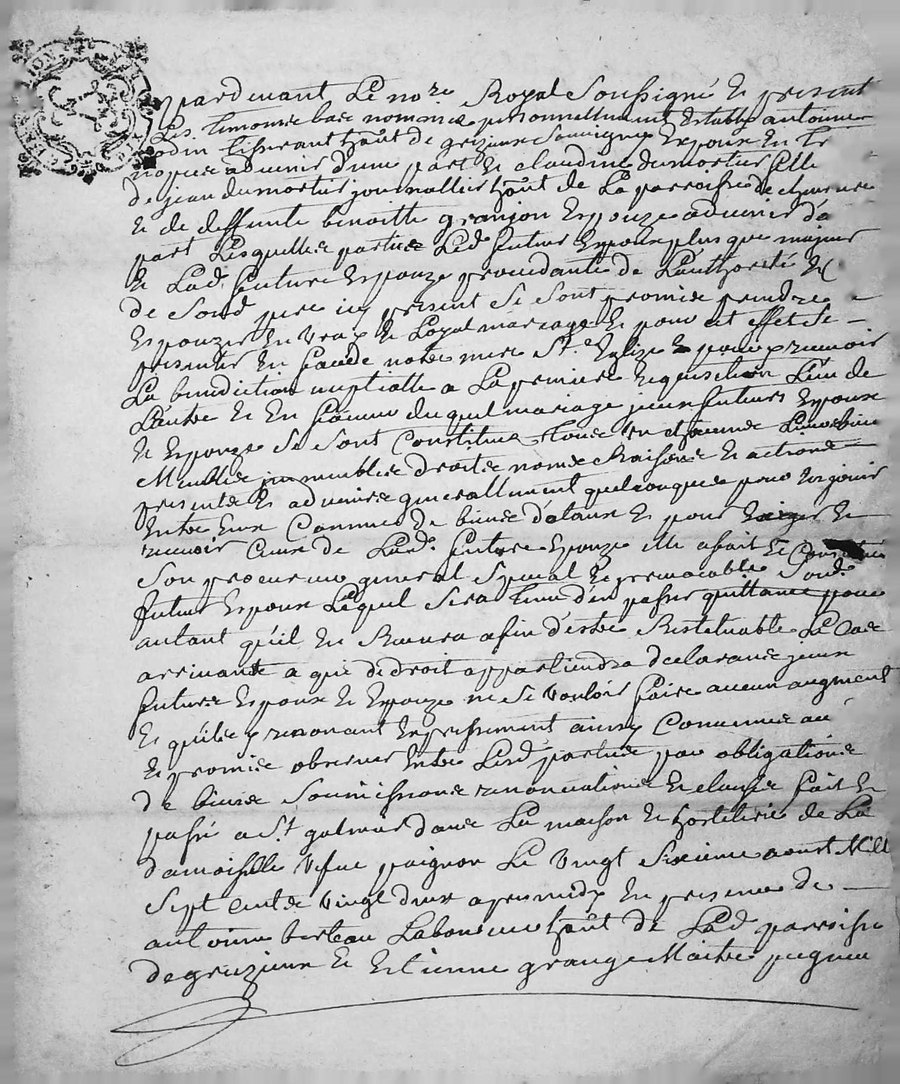 pardevant Le no.re Royal Soussigné Et present
Les temoins bas nommés personnellement Establys antoine
tisserant h'ant de grezieux Souvigny Espoux En tr
nopces advenir d'une part Et claudine dumortier fille
de jean dumortier journallier h'ant de La parroisse de
Et de deffunte benoitte granjon Espouze advenir d'a
part Lesquelles parties Led. futur Espoux plus que majeur
Et Lad. future Espouze procedante de L'authorité Et
de Sond. pere icy present Se Sont promis prendre
Espouzer En vray Et Loyal mariage Et pour cet effet Se
presenter En face de notre mere S.te Eglize Et pour y recevoir
La benediction nuptialle a La premiere requisition L'un de
L'autre Et En faveur duquel mariage iceux futurs Espoux
Et Espouze Se Sont Constitués touts Et chacuns Leurs biens
Meubles immeubles droits noms Raisons Et actions
presents Et advenirs generallement quelconques pour En jouir
Entre Eux Comme de biens dotaux Et pour Exiger Et
recevoir Ceux de Lad. future Espouze elle a fait Et Constitué
Son procureur general Special Et irrevocable Sond.
futur Espoux Lequel Sera tenu d'en passer quittance pour
autant qu'il En Recevra afin d'estre Restituable Le Cas
arrivant a qui de droit appartiendra declarants iceux
futurs Espoux Et Espouze ne Se vouloir faire aucun augment
Et qu'ils y renoncent Expressement ainsy Convenu
Et promis observer Entre Lesd. parties par obligations
de biens Soumissions renonciations Et clauses fait Et
passé a S.t galmier dans La maison Et hostelerie de La
damoiselle vefve paignon Le vingt Sixieme aoust Mil
Sept cents vingt deux apres midy En presence de
antoine berteau Laboureur h'ant de Lad parroisse
de grezieux Et Estienne grange Maitre